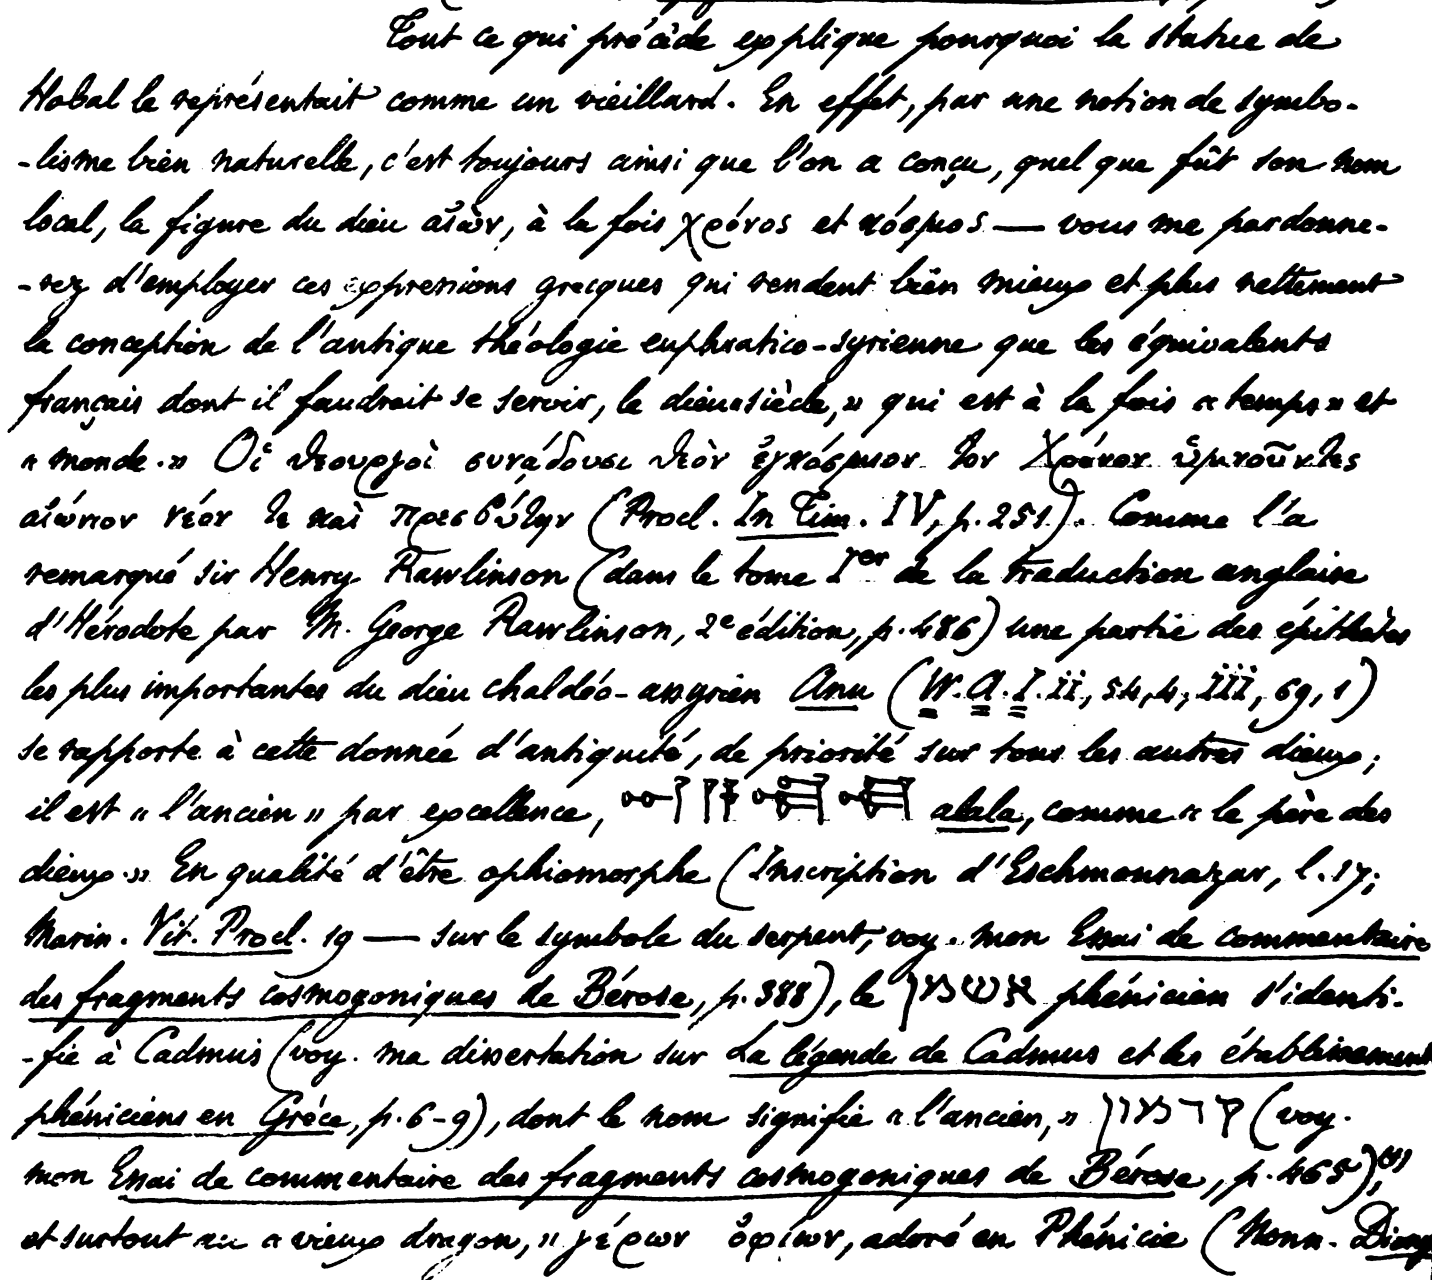 Tout ce qui précède explique pourquoi la statue de
Hobal le représentait comme un vieillard. En effet, par une notion de symbo-
-lisme bien naturelle, c'est toujours ainsi que l'on a conçu, quel que fût son nom
local, la figure du dieu αἰών, à la fois χρόνος et κόσμος — vous me pardonne-
-rez d'employer ces expressions grecques qui rendent bien mieux et plus nettement
la conception de l'antique théologie euphratico-syrienne que les équivalents
français dont il faudrait se servir, le dieu « siècle, » qui est à la fois « temps » et
« monde. » Οἱ θεουργοὶ συνᾴδουσι θεὸν ἐγκόσμιον τον Χρόνον ὑμνοῦντες
αἰώνιον νέον τε καὶ πρεσβύτην (Procl. In Tim. IV, p. 251). Comme l'a
remarqué sir Henry Rawlinson (dans le tome Ier de la traduction anglaise
d'Hérodote par M. George Rawlinson, 2e édition, p. 486) une partie des épithètes
les plus importantes du dieu chaldéo-assyrien Anu (W.A.I. ii, 54, 4; iii, 69, 1)
se rapporte à cette donnée d'antiquité, de priorité sur tous les autres dieux;
il est « l'ancien » par excellence, alala, comme « le père des
dieux. » En qualité d'être ophiomorphe (Inscription d'Eschmounazar, l. 17;
Marin. Vit. Procl. 19 — sur le symbole du serpent, voy. mon Essai de commentaire
des fragments cosmogoniques de Bérose, p. 388), le אשמן phénicien s'identi-
-fie à Cadmus (voy. ma dissertation sur La légende de Cadmus et les établissements
phéniciens en Grèce, p. 6-9), dont le nom signifie « l'ancien, » קדמון (voy.
mon Essai de commentaire des fragments cosmogoniques de Bérose, p. 465),(1)
et surtout au « vieux dragon, » γέρων ὀφίων, adoré en Phénicie (Nonn. Diony